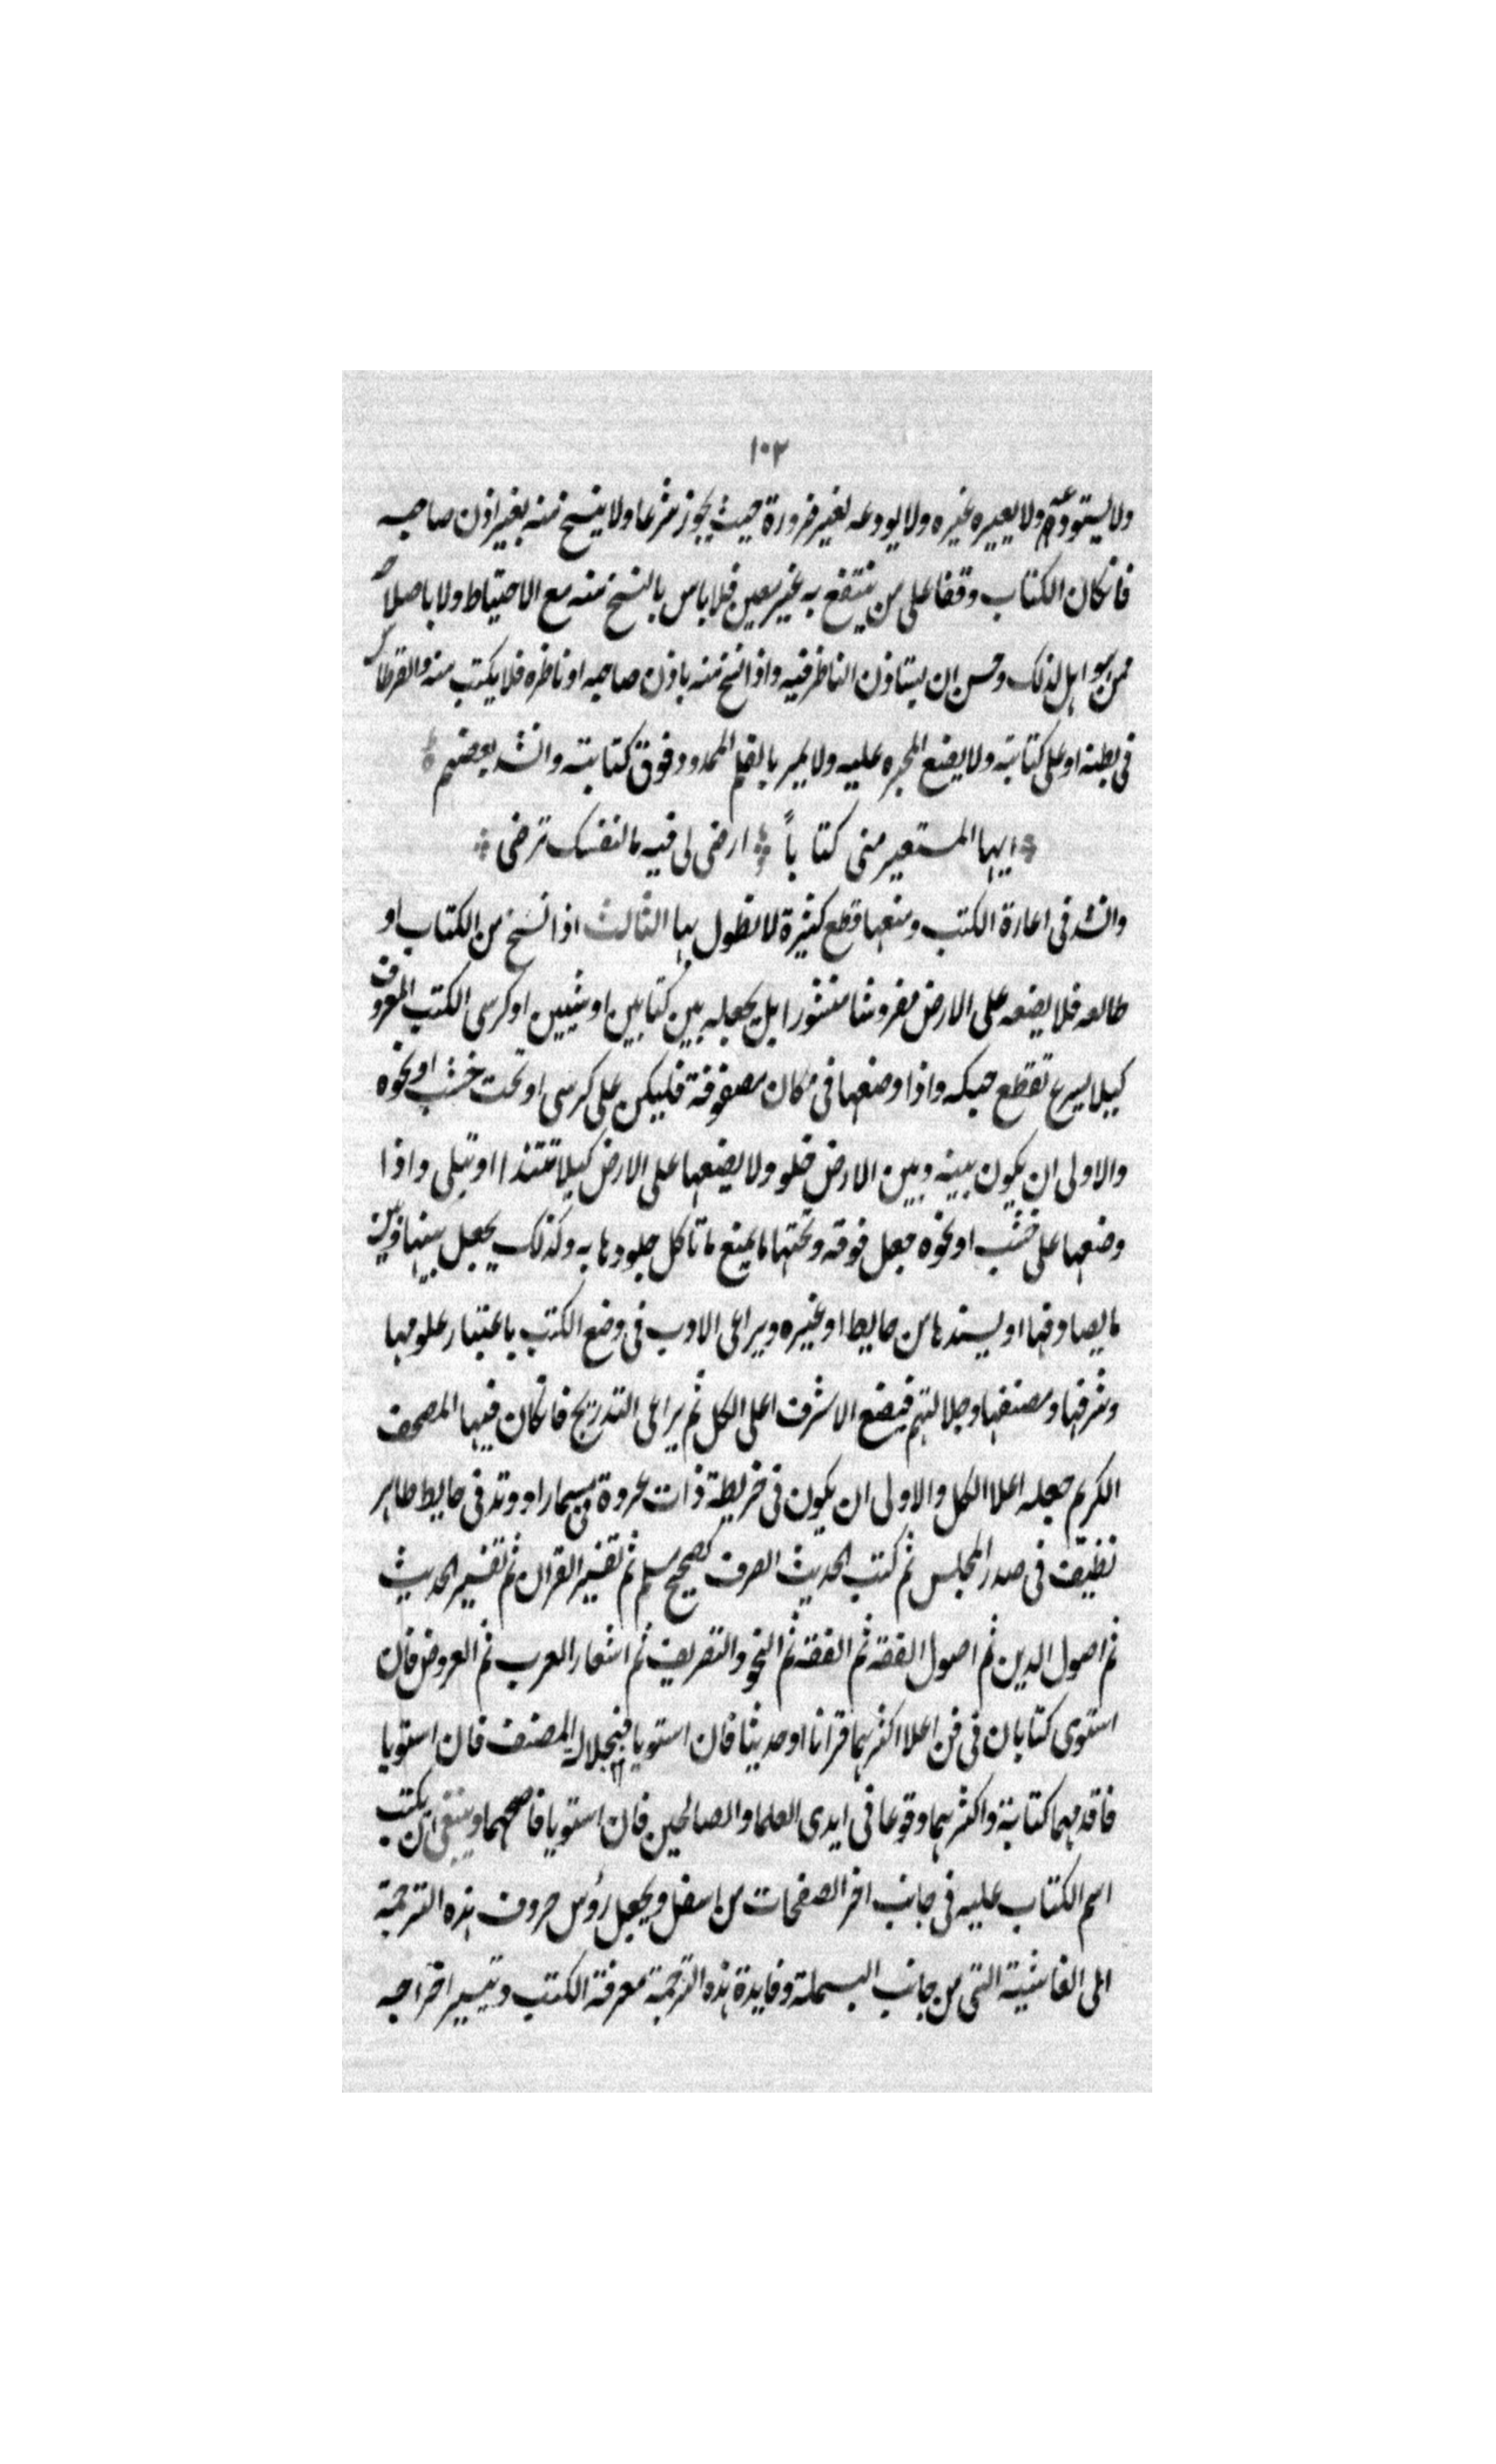 ١٠٣
ولا يستودعه ولا يعيره غيره ولا يودعه لغير ضرورة حيث يجوز شرعا ولا ينسخ منه بغير اذن صاحبه
فان كان الكتاب وقفا على من ينتفع به غير معين فلا باس بالنسخ منه مع الاحتياط ولا باصلاحه
ممن هو اهل لذلك وحسن ان يستاذن الناظر فيه واذا نسخ منه باذن صاحبه او ناظره فلا يكتب منه والقرطاس
في بطنه او على كتابته ولا يضع المحبره عليه ولا يمر بالقلم الممدود فوق كتابته وانشد بعضهم
ايها المستعير منى كتاباً ارضى لى فيه ما لنفسك ترضى
وانشد في اعارة الكتب ومنعها قطع كثيرة لا نطول بها الثالث اذا نسخ من الكتاب او
طالعه فلا يضعه على الارض مفروشا منشورا بل يجعله بين كتابين او شيين او كرسى الكتب المعروف
كيلا يسرع تقطع حبكه واذا وضعها في مكان مصفوفة فليكن على كرسى او تحت خشب او نحوه
والاولى ان يكون بينه وبين الارض خلو ولا يضعها على الارض كيلا تتندا او تبلى واذا
وضعها على خشب او نحوه جعل فوقه وتحتها ما يمنع ما تاكل جلودها به وكذلك يجعل بينها وبين
ما يصادفها او يسندها من حايط او غيره ويراعى الادب في وضع الكتب باعتبار علومها
وشرفها ومصنفها وجلالتهم فيضع الاشرف اعلى الكل ثم يراعى التدريج فان كان فيها المصحف
الكريم جعله اعلا الكل والاولى ان يكون في خريطة ذات عروة في مسمار او وتد في حايط طاهر
نظيف في صدر المجلس ثم كتب الحديث الصرف كصحيح مسلم ثم تفسير القران ثم تفسير الحديث
ثم اصول الدين ثم اصول الفقه ثم الفقه ثم النحو والتصريف ثم اشعار العرب ثم العروض فان
استوى كتابان في فن اعلا اكثرهما قرانا او حديثا فان استويا فبجلالة المصنف فان استويا
فاقدمهما كتابة واكثرهما وقوعا في ايدى العلما والصالحين فان استويا فاصحهما وينبغى ان يكتب
اسم الكتاب عليه في جانب اخر الصفحات من اسفل ويجعل رؤس حروف هذه الترجمة
الى الغاشية التى من جانب البسملة وفايدة هذه الترجمة معرفة الكتب وتيسير اخراجه